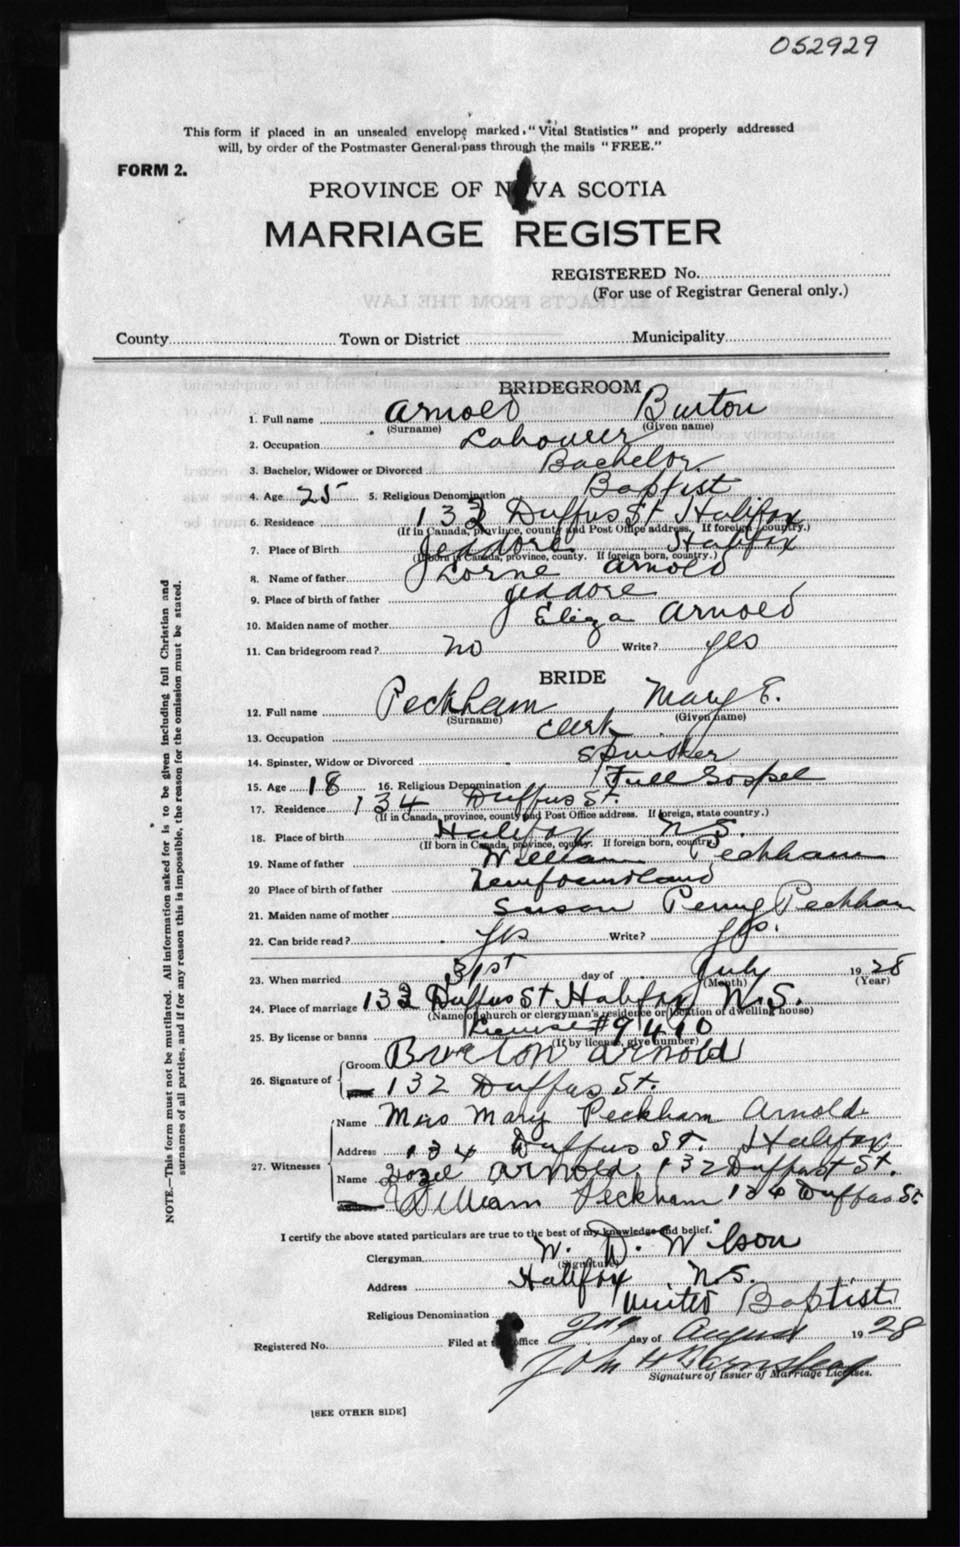 052929
This form if placed in an unsealed envelope marked "Vital Statistics" and properly addressed
will, by order of the Postmaster General pass through the mails "FREE."
FORM 2.
PROVINCE OF NOVA SCOTIA
MARRIAGE REGISTER
REGISTERED No.
(For use of Registrar General only.)
County Town or District Municipality
BRIDEGROOM
1. Full name Arnold Burton
(Surname) (Given name)
2. Occupation Labourer
3. Bachelor, Widower or Divorced Bachelor
4. Age 25 5. Religious Denomination Baptist
6. Residence 132 Duffus St Halifax
(If in Canada, province, county and Post Office address. If foreign country.)
7. Place of Birth Jeddore Halifax
(If born in Canada, province, county. If foreign born, country.)
8. Name of father Lorne Arnold
9. Place of birth of father Jeddore
10. Maiden name of mother Eliza Arnold
11. Can bridegroom read? no Write? yes
BRIDE
12. Full name Peckham Mary E.
(Surname) (Given name)
13. Occupation Clerk
14. Spinster, Widow or Divorced Spinster
15. Age 18 16. Religious Denomination Full Gospel
17. Residence 134 Duffus St.
(If in Canada, province, county and Post Office address. If foreign, state country.)
18. Place of birth Halifax N.S.
(If born in Canada, province, county. If foreign born, country)
19. Name of father William Peckham
20 Place of birth of father Newfoundland
21. Maiden name of mother Susan Penny Peckham
22. Can bride read? yes Write? yes.
23. When married 31st day of July 1928
(Month) (Year)
24. Place of marriage 132 Duffus St Halifax N.S.
(Name of church or clergyman's residence or location of dwelling house)
25. By license or banns License #9410
(If by license, give number)
26. Signature of Groom Burton Arnold
132 Duffus St.
27. Witnesses Name Mrs Mary Peckham Arnold
Address 134 Duffus St. Halifax
Name Arnold, 132 Duffus St.
William Peckham 134 Duffus St
I certify the above stated particulars are true to the best of my knowledge and belief.
Clergyman W. D. Wilson
(Signature)
Address Halifax N.S.
Religious Denomination United Baptist
Registered No. Filed at office 2nd day of August 1928
John H
Signature of Issuer of Marriage Licenses.
[SEE OTHER SIDE]
NOTE.—This form must not be mutilated. All information asked for is to be given including full Christian and
surnames of all parties, and if for any reason this is impossible, the reason for the omission must be stated.